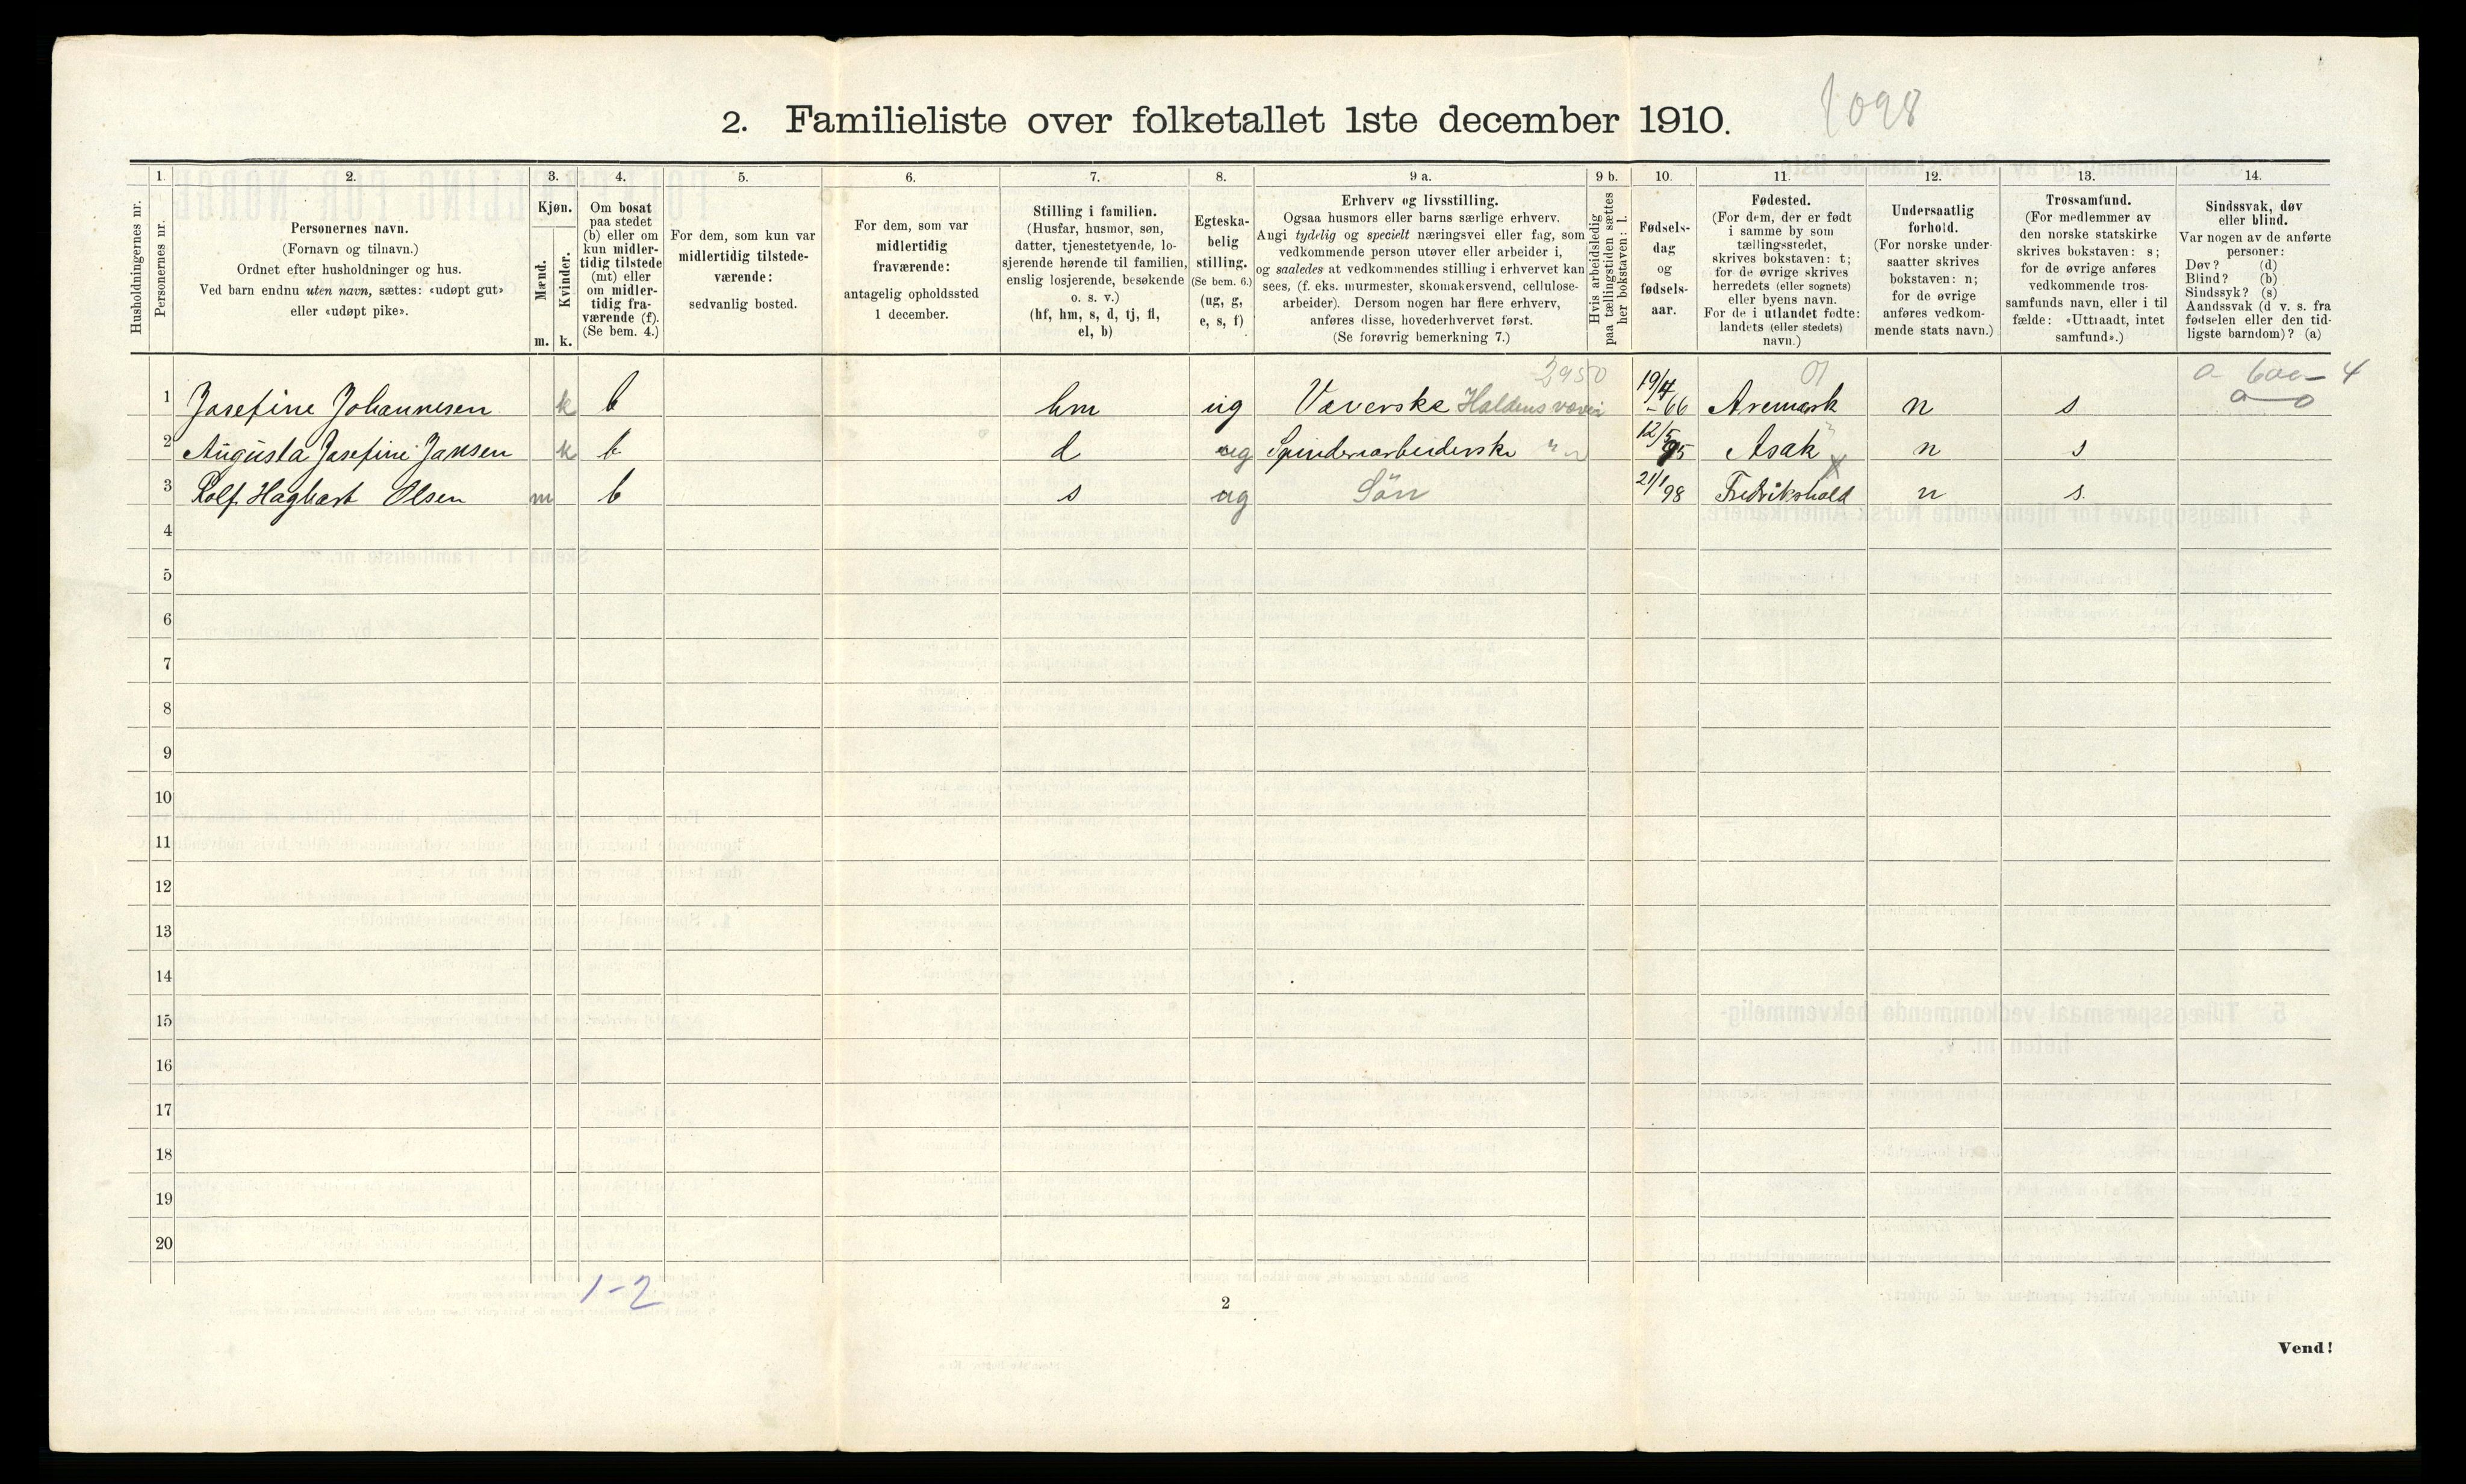 2. Familieliste over folketallet 1ste december 1910.
Husholdningernes nr.
1.
Personernes nr.
2.
Personernes navn.
(Fornavn og tilnavn.)
Ordnet efter husholdninger og hus.
Ved barn endnu uten navn, sættes: «udøpt gut»
eller «udøpt pike».
3.
Kjøn.
Mænd.
Kvinder.
m. k.
4.
Om bosat
paa stedet
(b) eller om
kun midler-
tidig tilstede
(mt) eller
om midler-
tidig fra-
værende (f).
(Se bem. 4.)
5.
For dem, som kun var
midlertidig tilstede-
værende:
sedvanlig bosted.
6.
For dem, som var
midlertidig
fraværende:
antagelig opholdssted
1 december.
7.
Stilling i familien.
(Husfar, husmor, søn,
datter, tjenestetyende, lo-
sjerende hørende til familien,
enslig losjerende, besøkende
o. s. v.)
(hf, hm, s, d, tj, fl,
el, b)
8.
Egteska-
belig
stilling.
(Se bem. 6.)
(ug, g,
e, s, f)
9 a.
Erhverv og livsstilling.
Ogsaa husmors eller barns særlige erhverv.
Angi tydelig og specielt næringsvei eller fag, som
vedkommende person utøver eller arbeider i,
og saaledes at vedkommendes stilling i erhvervet kan
sees, (f. eks. murmester, skomakersvend, cellulose-
arbeider). Dersom nogen har flere erhverv,
anføres disse, hovederhvervet først.
(Se forøvrig bemerkning 7.)
9 b.
Hvis arbeidsledig
paa tællingstiden sættes
her bokstaven: l.
10.
Fødsels-
dag
og
fødsels-
aar.
11.
Fødested.
(For dem, der er født
i samme by som
tællingsstedet,
skrives bokstaven: t;
for de øvrige skrives
herredets (eller sognets)
eller byens navn.
For de i utlandet fødte:
landets (eller stedets)
navn.)
12.
Undersaatlig
forhold.
(For norske under-
saatter skrives
bokstaven: n;
for de øvrige
anføres vedkom-
mende stats navn.)
13.
Trossamfund.
(For medlemmer av
den norske statskirke
skrives bokstaven: s;
for de øvrige anføres
vedkommende tros-
samfunds navn, eller i til
fælde: «Uttraadt, intet
samfund».)
14.
Sindssvak, døv
eller blind.
Var nogen av de anførte
personer:
Døv? (d)
Blind? (b)
Sindssyk? (s)
Aandssvak (d v. s. fra
fødselen eller den tid-
ligste barndom)? (a)
2950 01
1 Josefine Johannesen k b hm ug Væverske Haldens væveri 19/4 - 66 Aremark n s
2 Augusta Josefine Jansen k b d ug Spinderiarbeiderske " 12/5 95 Asak n s
3 Rolf Hagbart Olsen m b s ug Sön 21/1 98 Fredrikshald n s.
4
5
6
7
8
9
10
11
12
13
14
15
16
17
18
19
20
1-2
2
Vend!